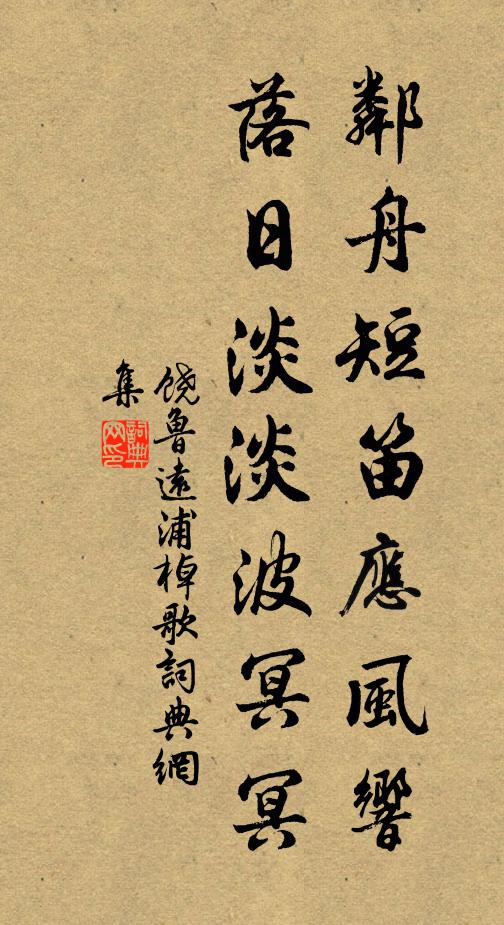 鄰舟短笛應風響
落日淡淡波冥冥
饒魯遠浦棹歌詞典網
集
詞典
网印